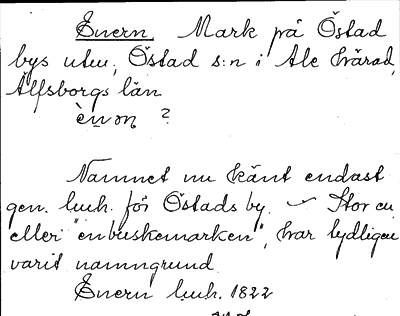 Enern. Mark på Östad
bys utm., Östad s:n i Ale härad,
Älfsborgs län
è̀nəɳ ?
Namnet nu känt endast
gen. luh. för Östads by. – Stor en
eller "enbuskemarken", har tydligen
varit namngrund
Enern luh. 1822